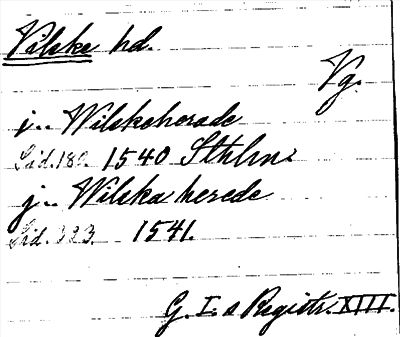 Vilske hd.
Vg.
j.. Wilskeherade
Sid. 180. 1540 Sthlm
j.. Wilska herede
Sid. 323. 1541.
G. I. s Registr. XIII.